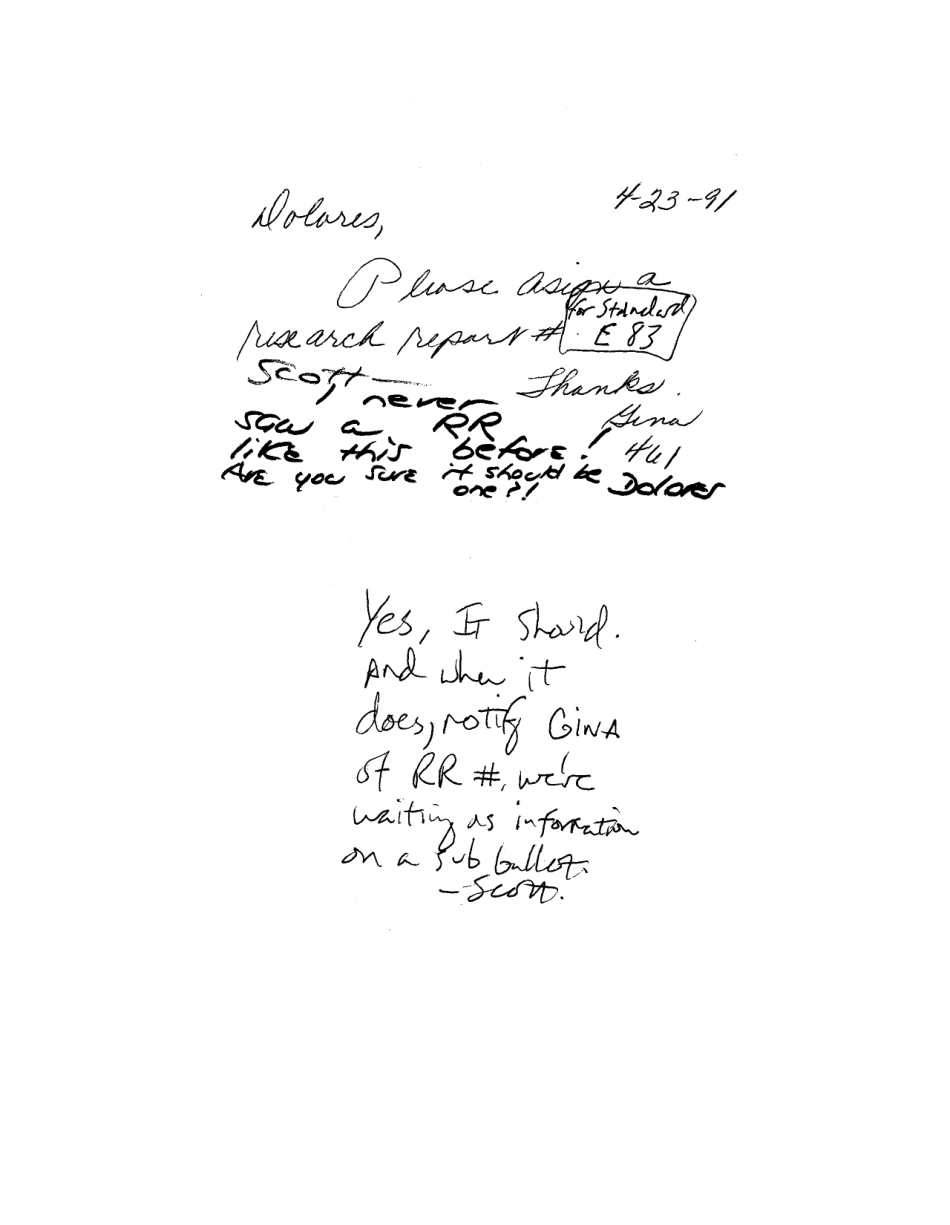 4-23-91
Dolores,
Please asign a
research report #
for Standard
E 83
Thanks.
Gina
461
Scott —
I never
saw a RR
like this before!
Are you sure it should be
one?!
Dolores
Yes, It should.
And when it
does, notify GINA
of RR #, we're
waiting as information
on a sub ballot.
-Scott.